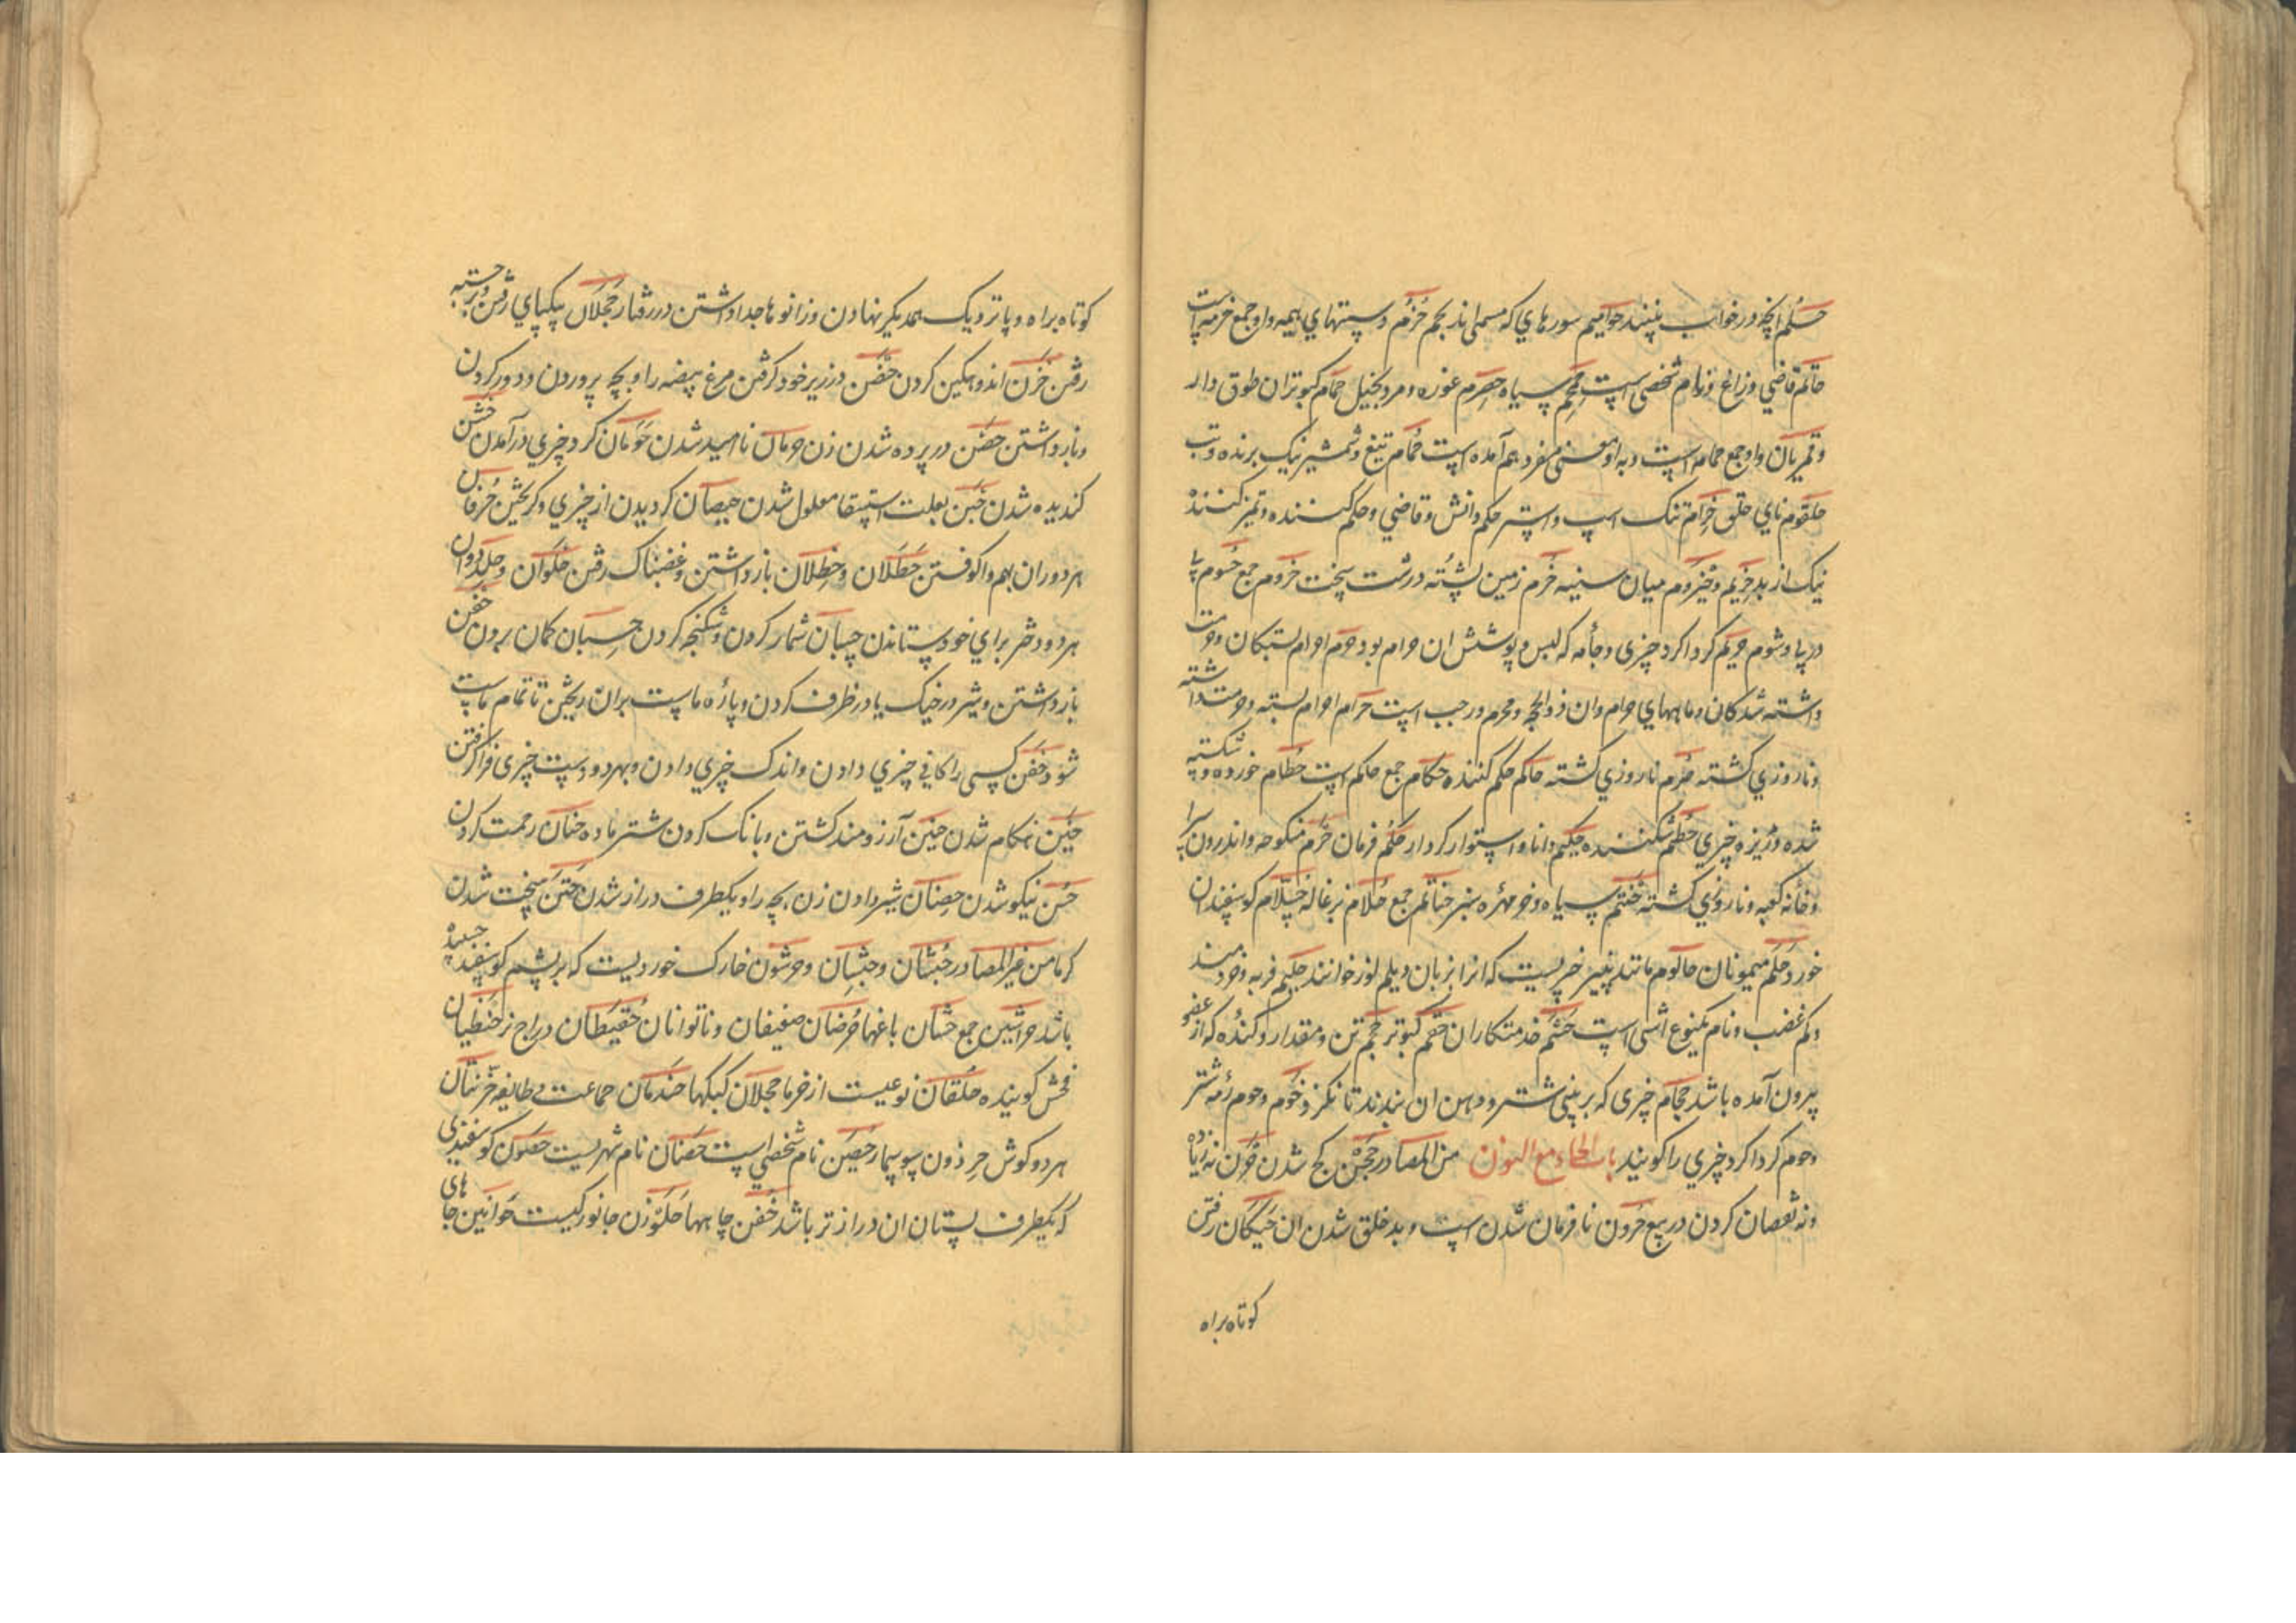 حُلم انچه در خواب بینند حوامیم سورهای که مسمی اند بحم حُزُم و ستهای هیمه و او جمع حزمه است
حاتم قاضی و زاغ و نام شخصی است حمحم سیاه حصرم غوره و مرد بخیل حمام کبوتران طوق دار
و قمریان و او جمع حمامه است و به او معنی مفرد هم آمده است حُمام تیغ و شمشیر نیک برنده و تب
حلقوم نای حلق حِزام تنک اسپ و استر حکم دانش و قاضی و حکم کننده و تمیز کننده
نیک از بد حزیم و حیزوم میان سینه حُزم زمین پشته درشت سخت حزوم جمع حُسوم پیا
در پی و شوم حریم کرداکرد چیزی و جامه که لبس و پوشش ان حرام بود حُرم احرام بستکان و حرمت
داشته شدکان و ماههای حرام و ان ذوالحجه و محرم و رجب است حرام احرام بسته و حرمت داشته
و ناروزی کشته حُرم ناروزی کشته حاکم حکم کننده حکام جمع حاکم است حُطام خورده و شکسته
شده و ریزه چیزی حُطم شکننده حکیم دانا و استوار کردار حکم فرمان حَرَم منکوحه و اندرون سرا
و خانه کعبه و ناروزی کشته حنتم سیاه و خرمهره سبز حناتم جمع حُلام بزغاله حلّام کوسفندان
خورد حَلَم میمونان حالوم مانند پنیر چیزیست که انرا بزبان دیلم لور خوانند حلیم فربه و خردمند
و کم غضب و نام یکنوع اشی است حَشَم خدمتکاران حُمحُم کبوتر حجم تن و مقدار و کنده که از عضو
بیرون آمده باشد حجام چیزی که بر بینی شتر و دهن ان بندند تا نکزد حوم و حوم رمه شتر
و حوم کرداکرد چیزی را کویند باب الحاء مع النون من المصادر حَجَن کج شدن حُرن نه زیاده
و نه نقصان کردن در بیع حرون نافرمان شدن اسپ و بدخلق شدن ان حَیَکان رفتن
کوتاه براه
کوتاه براه و پا نزدیک همدیکر نهادن و زانوها جدا داشتن در رفتار حَجَلان بیکپای رفتن و برجسته
رفتن حَزَن اندوهکین کردن حَضن در زیر خود کرفتن مرغ بیضه را و بچه پروردن و دور کردن
و باز داشتن حَصن در پرده شدن زن حرمان ناامید شدن حَوَمان کرد چیزی درآمدن حَشَن
کندیده شدن حَبَن بعلت استسقا معلول شدن حَیصان کردیدن از چیزی و کریختن حُرفان
هر دو ران بهم واکوفتن حَظَلان و حِظلان باز داشتن و غضبناک رفتن حَلَوان و حلدوان
هر دو دختر برای خود ستاندن حُسبان شمار کردن و شکنجه کردن حِسبان کمان بردن حَقن
باز داشتن و شیر در خیک یا در ظرف کردن و پاره ماست بران ریختن تا تمام ماست
شود حَفن کسی را کافی چیزی دادن و اندک چیزی دادن و بهر دو دست چیزی فراکرفتن
حین هنکام شدن حنین آرزومند کشتن و بانک کردن شتر ماده حنان رحمت کردن
حُسن نیکو شدن حِضنان شیر دادن زن بچه را و یکطرف دراز شدن حَتن سخت شدن
کرما من غیر المصادر حُبشان و حبشان و حرشون خارک خوردیست که بر پشم کوسفند چسبیده
باشد حراشین جمع حشّان باغها حُرضان ضعیفان و ناتوانان حُقیُطان دراج نر حنظیان
فحش کوینده حُلقان نوعیست از خرما حجلان کبکها حندمان جماعت و طایفه حُرّتان
هر دو کوش حِرذون سوسمار حُصَین نام شخصی است حَصنان نام شهریست حَضون کوسفندی
که یکطرف پستان ان درازتر باشد حُفَن چاهها حَلَزون جانوریست حَوانین جاهای